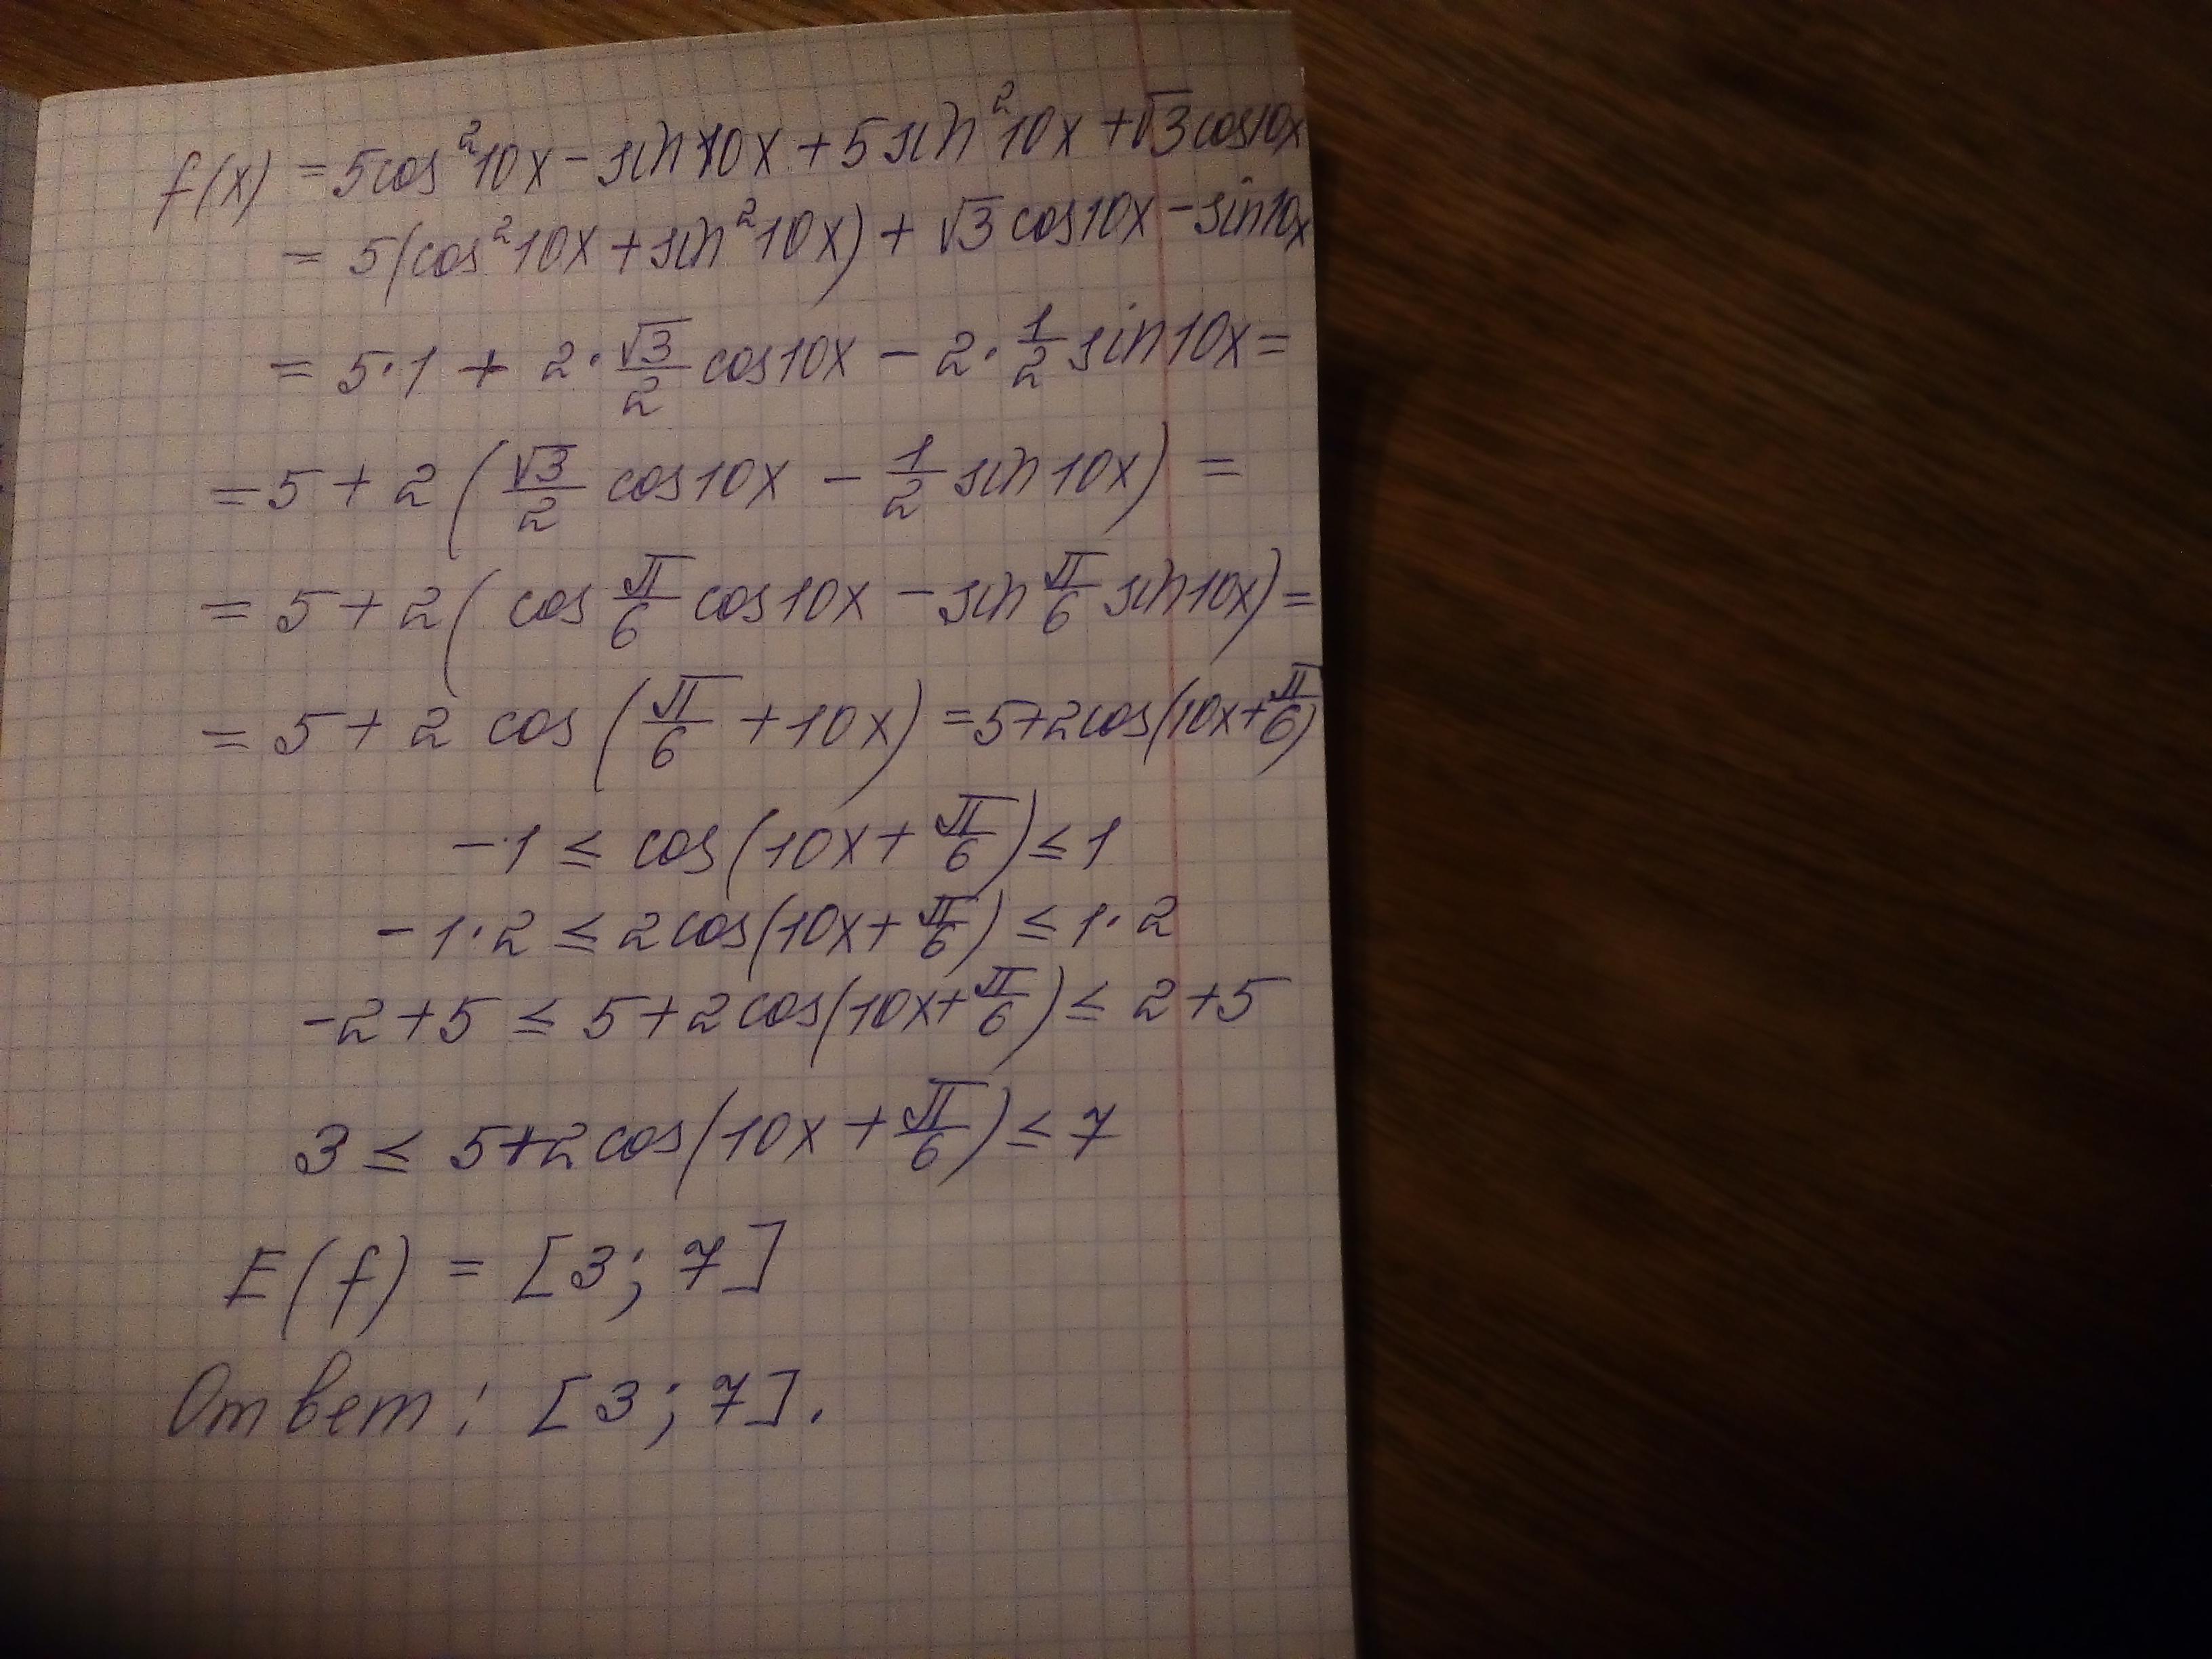 f(x) = 5cos²10x - sin10x + 5sin²10x + √3cos10x
= 5(cos²10x + sin²10x) + √3 cos10x - sin10x
= 5·1 + 2·√3/2 cos10x - 2·1/2 sin10x =
= 5 + 2(√3/2 cos10x - 1/2 sin10x) =
= 5 + 2(cos π/6 cos10x - sin π/6 sin10x) =
= 5 + 2 cos(π/6 + 10x) = 5+2cos(10x+π/6)
-1 ≤ cos(10x + π/6) ≤ 1
-1·2 ≤ 2cos(10x + π/6) ≤ 1·2
-2+5 ≤ 5+2cos(10x+π/6) ≤ 2+5
3 ≤ 5+2cos(10x + π/6) ≤ 7
E(f) = [3; 7]
Ответ: [3; 7].